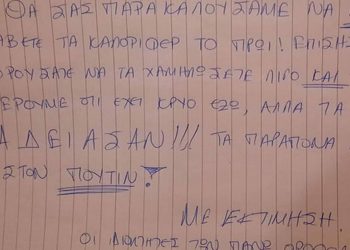 ΘΑ ΣΑΣ ΠΑΡΑΚΑΛΟΥΣΑΜΕ ΝΑ
ΑΒΕΤΕ ΤΑ ΚΑΛΟΡΙΦΕΡ ΤΟ ΠΡΩΙ! ΕΠΙΣΗΣ
ΟΡΟΥΣΑΤΕ ΝΑ ΤΑ ΧΑΜΗΛΩΣΕΤΕ ΛΙΓΟ ΚΑΙ
ΕΡΟΥΜΕ ΟΤΙ ΕΧΕΙ ΚΡΥΟ ΕΞΩ, ΑΛΛΑ ΤΑ
ΑΔΕΙΑΣΑΝ!!! ΤΑ ΠΑΡΑΠΟΝΑ
ΣΤΟΝ ΠΟΥΤΙΝ!
ΜΕ ΕΚΤΙΜΗΣΗ.
ΟΙ ΤΩΝ ΠΑΝΩ